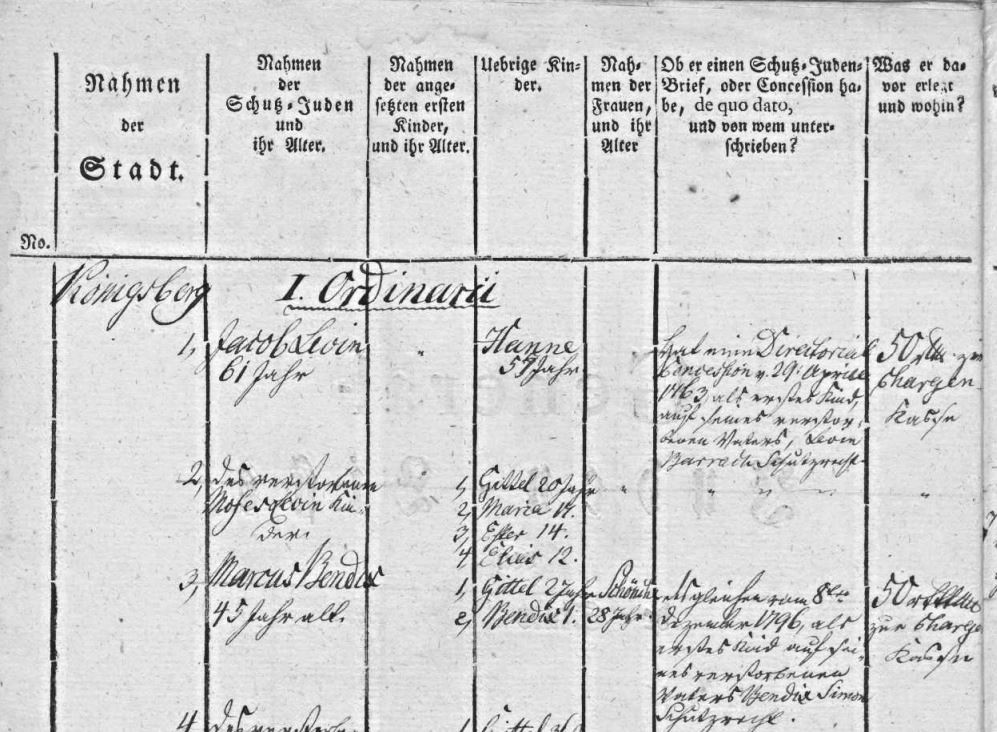 Nahmen
der
Stadt.
Nahmen
der
Schutz-Juden
und
ihr Alter.
Nahmen
der ange-
setzten ersten
Kinder,
und ihr Alter.
Uebrige Kin-
der.
Nah-
men der
Frauen,
und ihr
Alter
Ob er einen Schutz-Juden-
Brief, oder Concession ha-
be, de quo dato,
und von wem unter-
schrieben?
Was er da-
vor erlegt
und wohin?
No.
Königsberg
I. Ordinarii
1, Jacob Levin
61 Jahr
Hanne
57 Jahr
Hat eine Directorial
Concession v. 29t. Aprill
1763, als erstes Kind,
auf seines verstor-
benen Vaters, Levin
Barrach Schutzrecht
50 rthlr. zur
Chargen
Kasse
2, des verstorbenen
Moses Levin Kin-
der.
1, Gittel 20 Jahr
2, Maria 17.
3, Ester 14.
4 Elias 12.
3, Marcus Bendix
45 Jahr alt.
1, Gittel 2 Jahr
2, Bendix 1.
28 Jahr
desgleichen vom 8ten
Dezember 1796, als
erstes Kind auf sei-
nes verstorbenen
Vaters Bendix Simon
Schutzrecht.
50
zur Chargen
Kasse
4, des